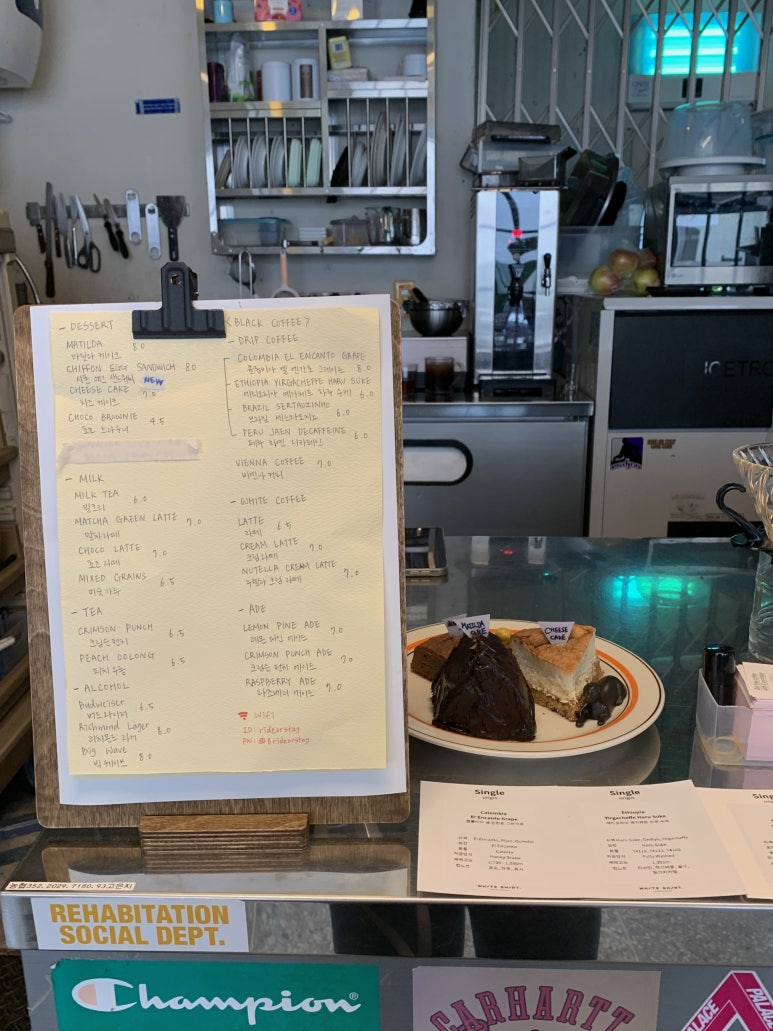 - DESSERT
MATILDA 8.0
마틸다 케이크
CHIFFON EGG SANDWICH 8.0
시폰 에그 샌드위치 NEW
CHEESE CAKE 7.0
치즈 케이크
CHOCO BROWNIE 4.5
초코 브라우니
- MILK
MILK TEA 6.0
밀크티
MATCHA GREEN LATTE 7.0
말차라떼
CHOCO LATTE 7.0
초코 라떼
MIXED GRAINS 6.5
미숫가루
- TEA
CRIMSON PUNCH 6.5
크림슨 펀치
PEACH OOLONG 6.5
피치 우롱
- ALCOHOL
Budweiser 6.5
버드와이저
Richmond Lager 8.0
리치몬드 라거
Big Wave 8.0
빅 웨이브
<BLACK COFFEE>
- DRIP COFFEE
COLOMBIA EL ENCANTO GRAPE
콜롬비아 엘 엔칸토 그레이프 8.0
ETHIOPIA YIRGACHEFFE HARU SUKE
에티오피아 예가체프 하루 수케 6.0
BRAZIL SERTAOZINHO 6.0
브라질
PERU JAEN DECAFFEINE 6.0
페루 하엔 디카페인
VIENNA COFFEE 7.0
비엔나 커피
- WHITE COFFEE
LATTE 6.5
라떼
CREAM LATTE 7.0
크림 라떼
NUTELLA CREAM LATTE 7.0
누텔라 크림 라떼
- ADE
LEMON PINE ADE 7.0
레몬 파인 에이드
CRIMSON PUNCH ADE 7.0
크림슨 펀치 에이드
RASPBERRY ADE 7.0
라즈베리 에이드
WIFI
ID: riderstay
PW: @Briderstay
MATILDA CAKE
CHEESE CAKE
Single
origin
Colombia
El Encanto Grape
Single
origin
Ethiopia
Yirgacheffe Haru Suke
농협352. 2029. 7160. 93고은지
REHABITATION
SOCIAL DEPT.
Champion®
CARHARTT
PALACE